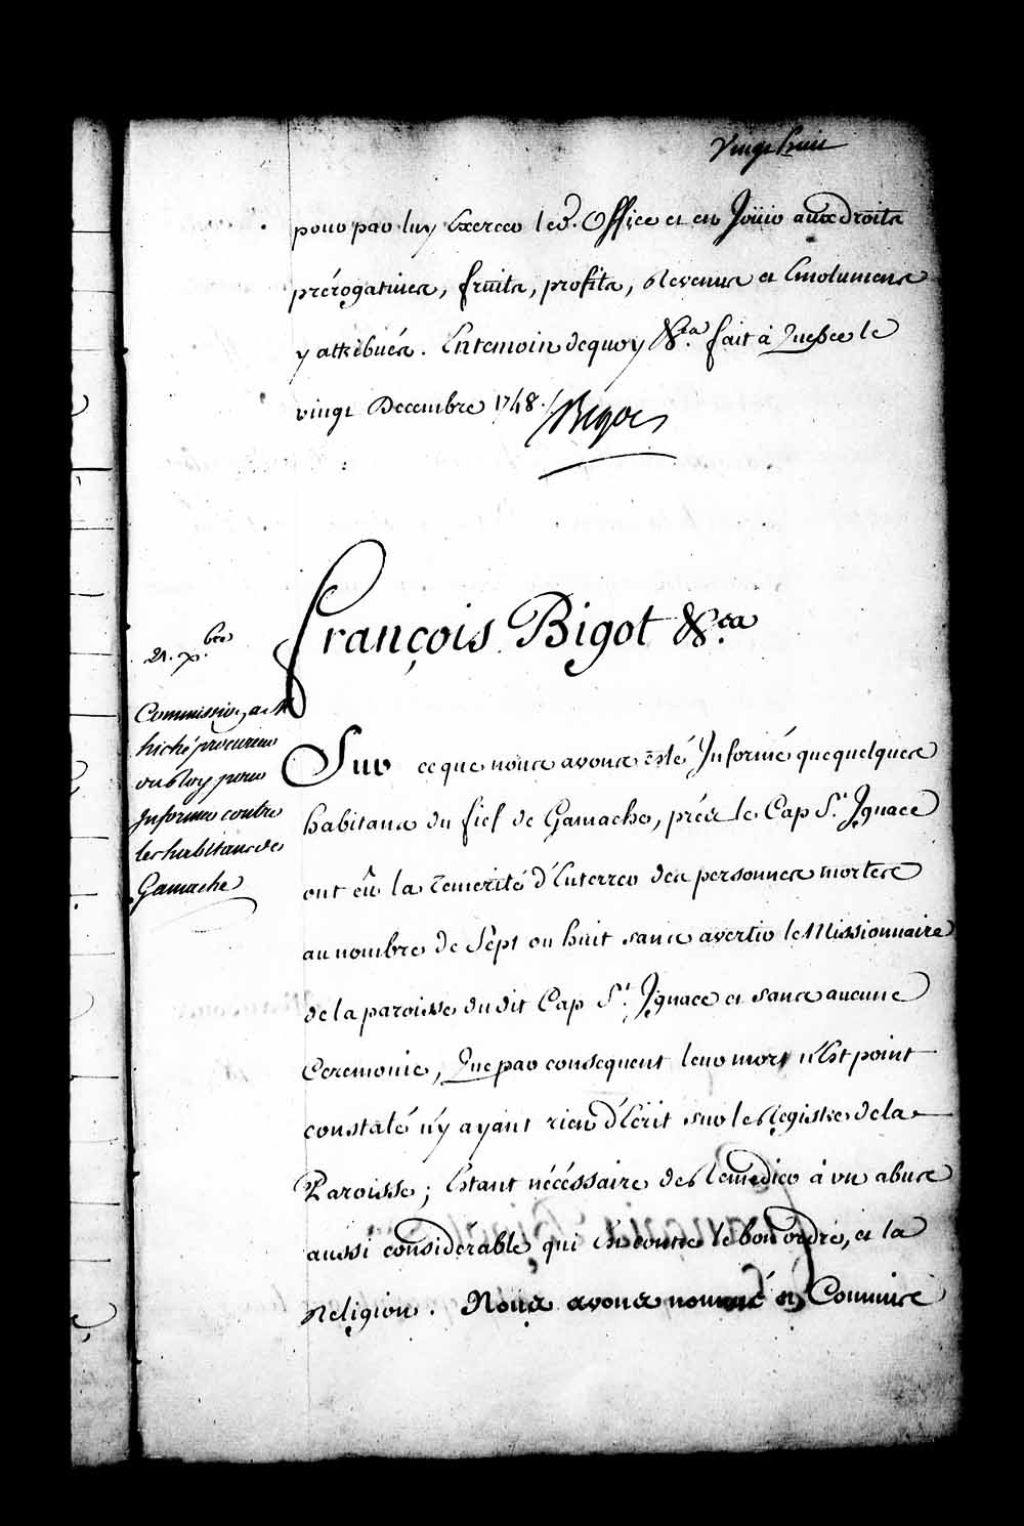 Vingt huit
pour par luy Exercer led. Office et en Joüir aux droits
prérogatives, fruits, profits, Revenus et Emolumens
y attribués. En temoin de quoy &ca. fait à Quebec le
vingt Decembre 1748. Bigot
François Bigot &ca
21. Xbre
Commission, a M
hiché procureur
du Roy pour
Informer contre
les habitans de
Gamache
Sur ce que nous avons esté Informé que quelques
habitans du fief de Gamache, prés le Cap St. Ignace
ont eû la temerité d'Enterrer des personnes mortes
au nombre de sept ou huit sans avertir le Missionnaire
de la paroisse du dit Cap St. Ignace et sans aucune
Ceremonie, Que par consequent leur mort n'Est point
constaté n'y ayant rien d'Ecrit sur le Registre de la
Paroisse; Estant nécéssaire de Remedier à un abus
aussi considerable qui Est contre le bon ordre, et la
Religion. Nous avons nommé et Commis